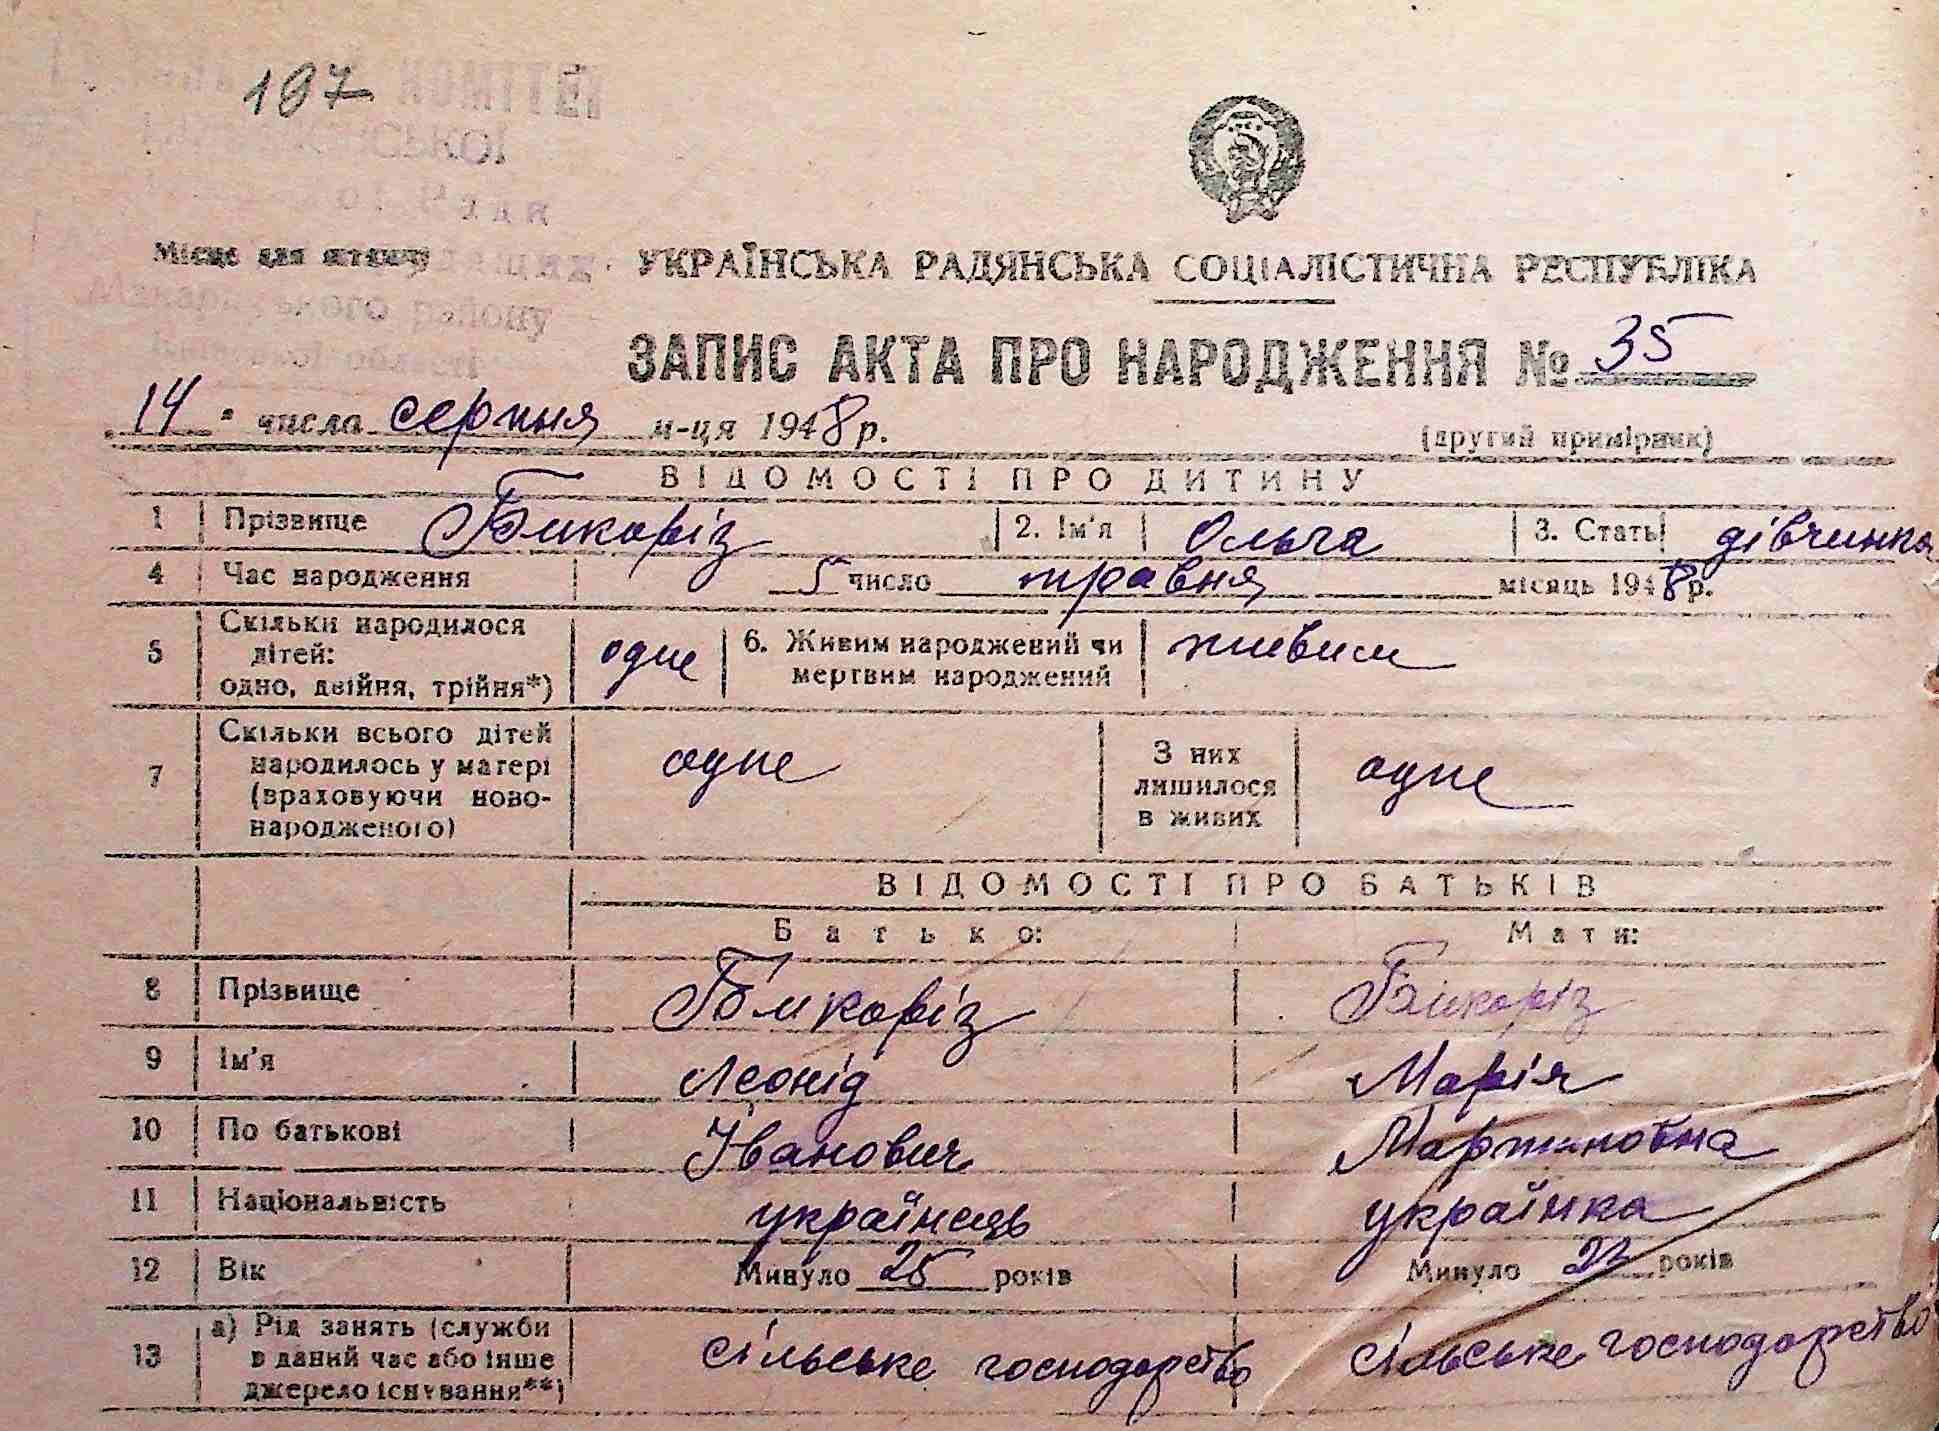 197
КОМІТЕТ
Місце для штампу
району
УКРАЇНСЬКА РАДЯНСЬКА СОЦІАЛІСТИЧНА РЕСПУБЛІКА
ЗАПИС АКТА ПРО НАРОДЖЕННЯ № 35
14 " числа серпня м-ця 1948 р.
(другий примірник)
ВІДОМОСТІ ПРО ДИТИНУ
1 Прізвище Бикоріз 2. Ім'я Ольга 3. Стать дівчинка
4 Час народження 5 число травня місяць 1948 р.
5 Скільки народилося дітей: одно, двійня, трійня*) одне 6. Живим народжений чи мертвим народжений живим
7 Скільки всього дітей народилось у матері (враховуючи ново-народженого) одне З них лишилося в живих одне
ВІДОМОСТІ ПРО БАТЬКІВ
Батько: Мати:
8 Прізвище Бикоріз Бикоріз
9 Ім'я Леонід Марія
10 По батькові Іванович Мартиновна
11 Національність українець українка
12 Вік Минуло 25 років Минуло 22 років
13 а) Рід занять (служби в даний час або інше джерело існування**) сільське господарство сільське господарство